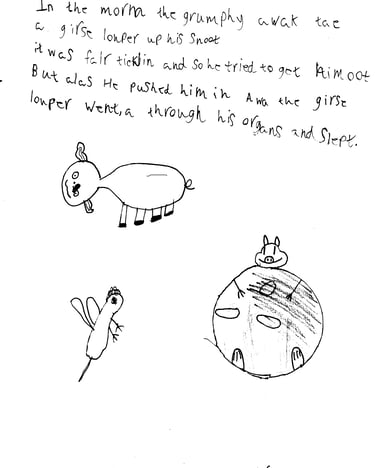 In the morna the grumphy awak tae
a girse louper up his Snoot
it was fair ticklin and so he tried to get Aim oot
But alas He pushed him in Awa the girse
louper went, a through his organs and Slept.